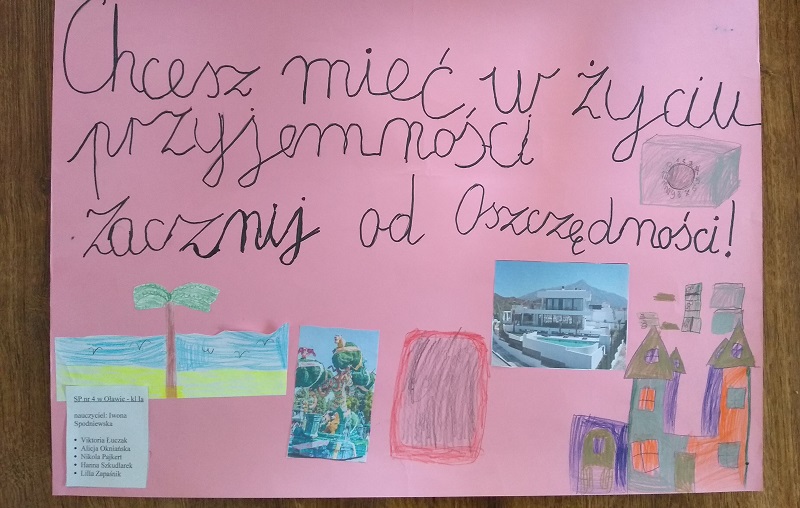 Chcesz mieć w życiu
przyjemności
Zacznij od Oszczędności!
SP nr 4 w Oławie - kl Ia
nauczyciel: Iwona
Spodniewska
• Viktoria Łuczak
• Alicja Okniańska
• Nikola Pajkert
• Hanna Szkudlarek
• Lilla Zapaśnik